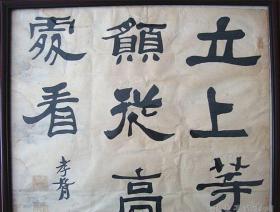 立上等
願從高
處看
孝胥